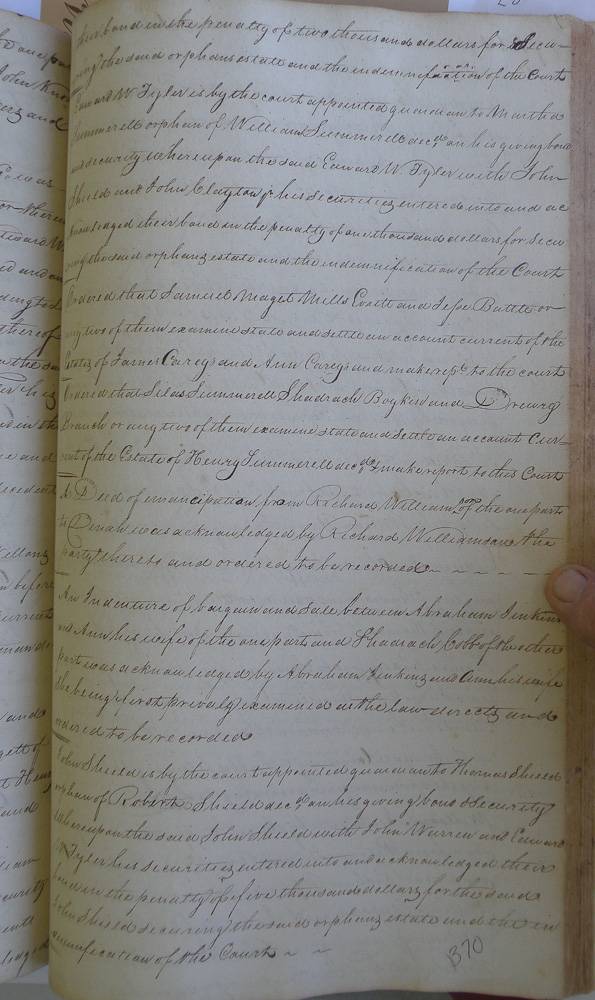 their bond in the penalty of two thousand dollars for secu-
ring the said orphans estate and the indemnification of the Court
Edward W. Tyler is by the court appointed guardian to Martha
Summerell orphan of William Summerell decd. on his giving bond
and security whereupon the said Edward W. Tyler with John
Shield and John Clayton jr. his securities entered into and ac
knowledged their bond in the penalty of one thousand dollars for secu
ring the said orphans estate and the indemnification of the Court
Ordered that Samuel Maget Mills and Jesse Battle or
any two of them examine state and settle an account current of the
Estates of James Careys and Ann Careys and make rept. to the court
Ordered that Silas Summerell Shadrach Boykin and Drewry
Branch or any two of them examine state and settle an account Cur-
rent of the Estate of Henry Summerell decd. & make report to this Court
A Deed of emancipation from Richard Williamson of the one part
to Dinah was acknowledged by Richard Williamson the
party thereto and ordered to be recorded
An Indenture of bargain and sale between Abraham Jenkins
and Ann his wife of the one part and Shadrach Cobb of the other
part was acknowledged by Abraham Jenkins and Ann his wife
she being first privaly examined as the law directs and
ordered to be recorded
John Shield is by the court appointed guardian to Thomas Shield
orphan of Robert Shield decd. on his giving bond & security
whereupon the said John Shield with John Warren and Edward
W. Tyler his securities entered into and acknowledged their
bond in the penalty of five thousand dollars for the said
John Shield securing the said orphans estate and the in
demnification of the Court
370